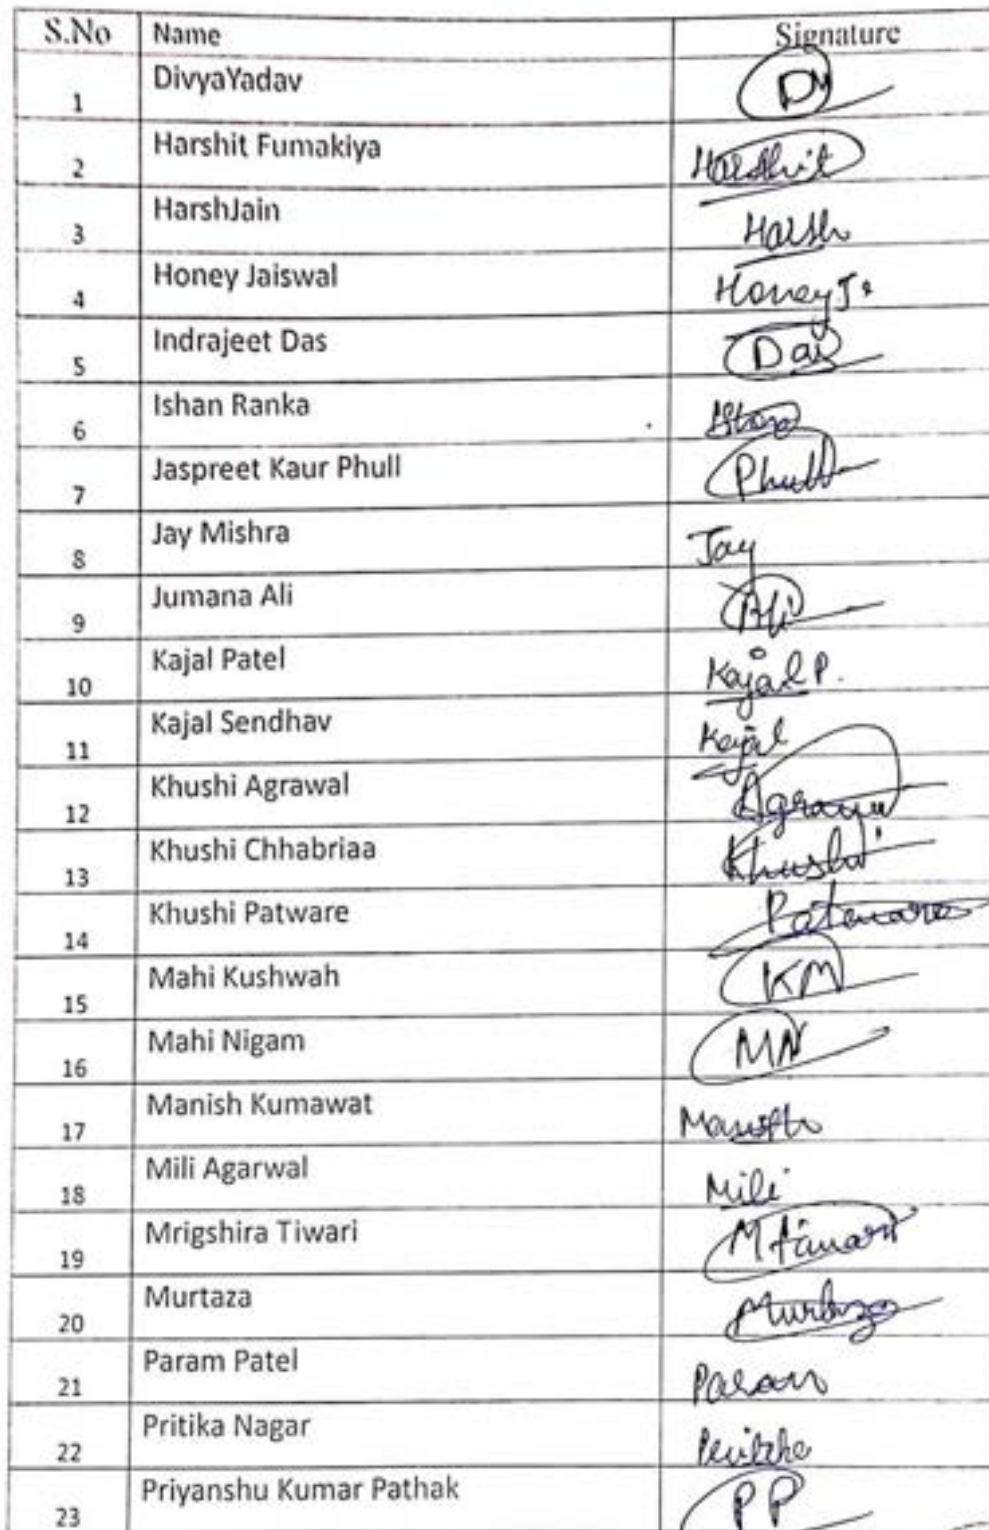 S.No Name Signature
1 DivyaYadav DY
2 Harshit Fumakiya Harshit
3 HarshJain Harsh
4 Honey Jaiswal Honey J.
5 Indrajeet Das Das
6 Ishan Ranka
7 Jaspreet Kaur Phull Phull
8 Jay Mishra Jay
9 Jumana Ali Ali
10 Kajal Patel Kajal P.
11 Kajal Sendhav Kajal
12 Khushi Agrawal
13 Khushi Chhabriaa Khushi
14 Khushi Patware Patware
15 Mahi Kushwah KM
16 Mahi Nigam MN
17 Manish Kumawat Manish
18 Mili Agarwal Mili
19 Mrigshira Tiwari
20 Murtaza Murtaza
21 Param Patel Param
22 Pritika Nagar
23 Priyanshu Kumar Pathak PP